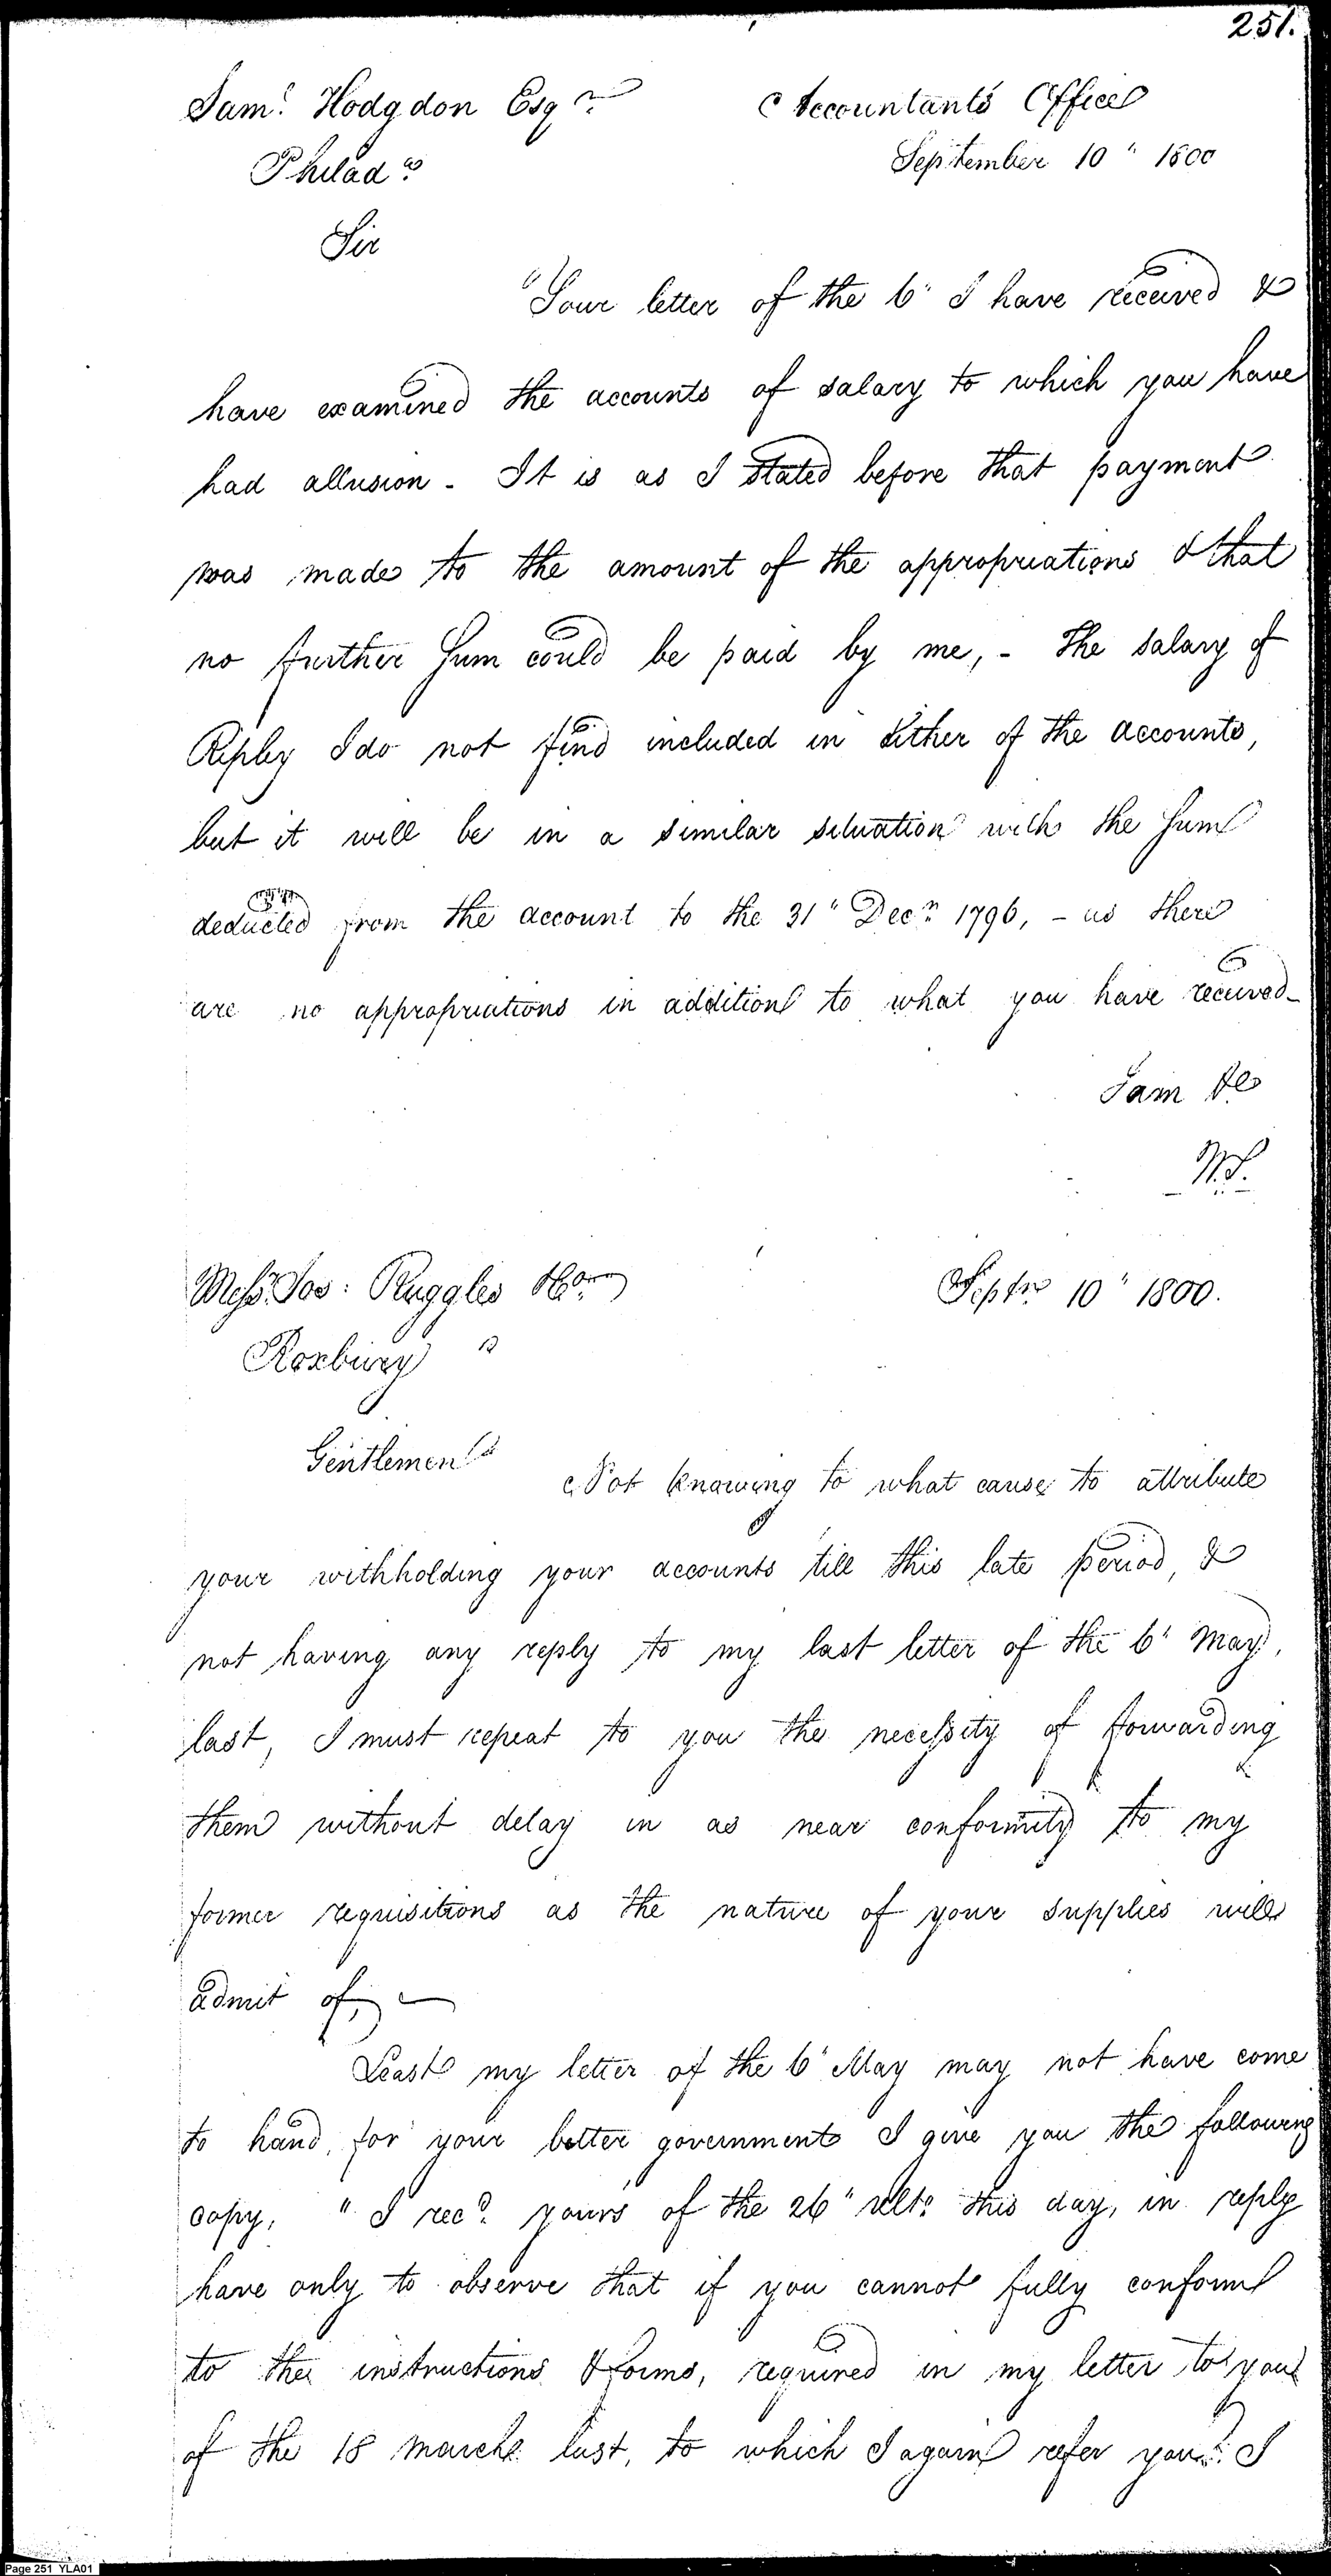 251.
Sam.l Hodgdon Esqr.
Accountants Office
Philada.
September 10" 1800
Sir
Your letter of the 6" I have received &
have examined the accounts of salary to which you have
had allusion - It is as I stated before that payment
was made to the amount of the appropriations & that
no further Sum could be paid by me, - The salary of
Ripley I do not find included in Either of the accounts,
but it will be in a similar situation with the Sum
deducted from the account to the 31" Decr. 1796, - as there
are no appropriations in addition to what you have received -
I am &c
W.S.
Messrs. Jos: Ruggles & Co.
Septr 10" 1800.
Roxbury
Gentlemen
Not knowing to what cause to attribute
your withholding your accounts till this late period, &
not having any reply to my last letter of the 6" May,
last, I must repeat to you the necessity of forwarding
them without delay in as near conformity to my
former requisitions as the nature of your supplies will
admit of, —
Least my letter of the 6" May may not have come
to hand, for your better government I give you the following
copy, " I recd. yours of the 26" ulto. this day, in reply
have only to observe that if you cannot fully conform
to the instructions & forms, required in my letter to you
of the 18 March last, to which I again refer you. I
Page 251 YLA01